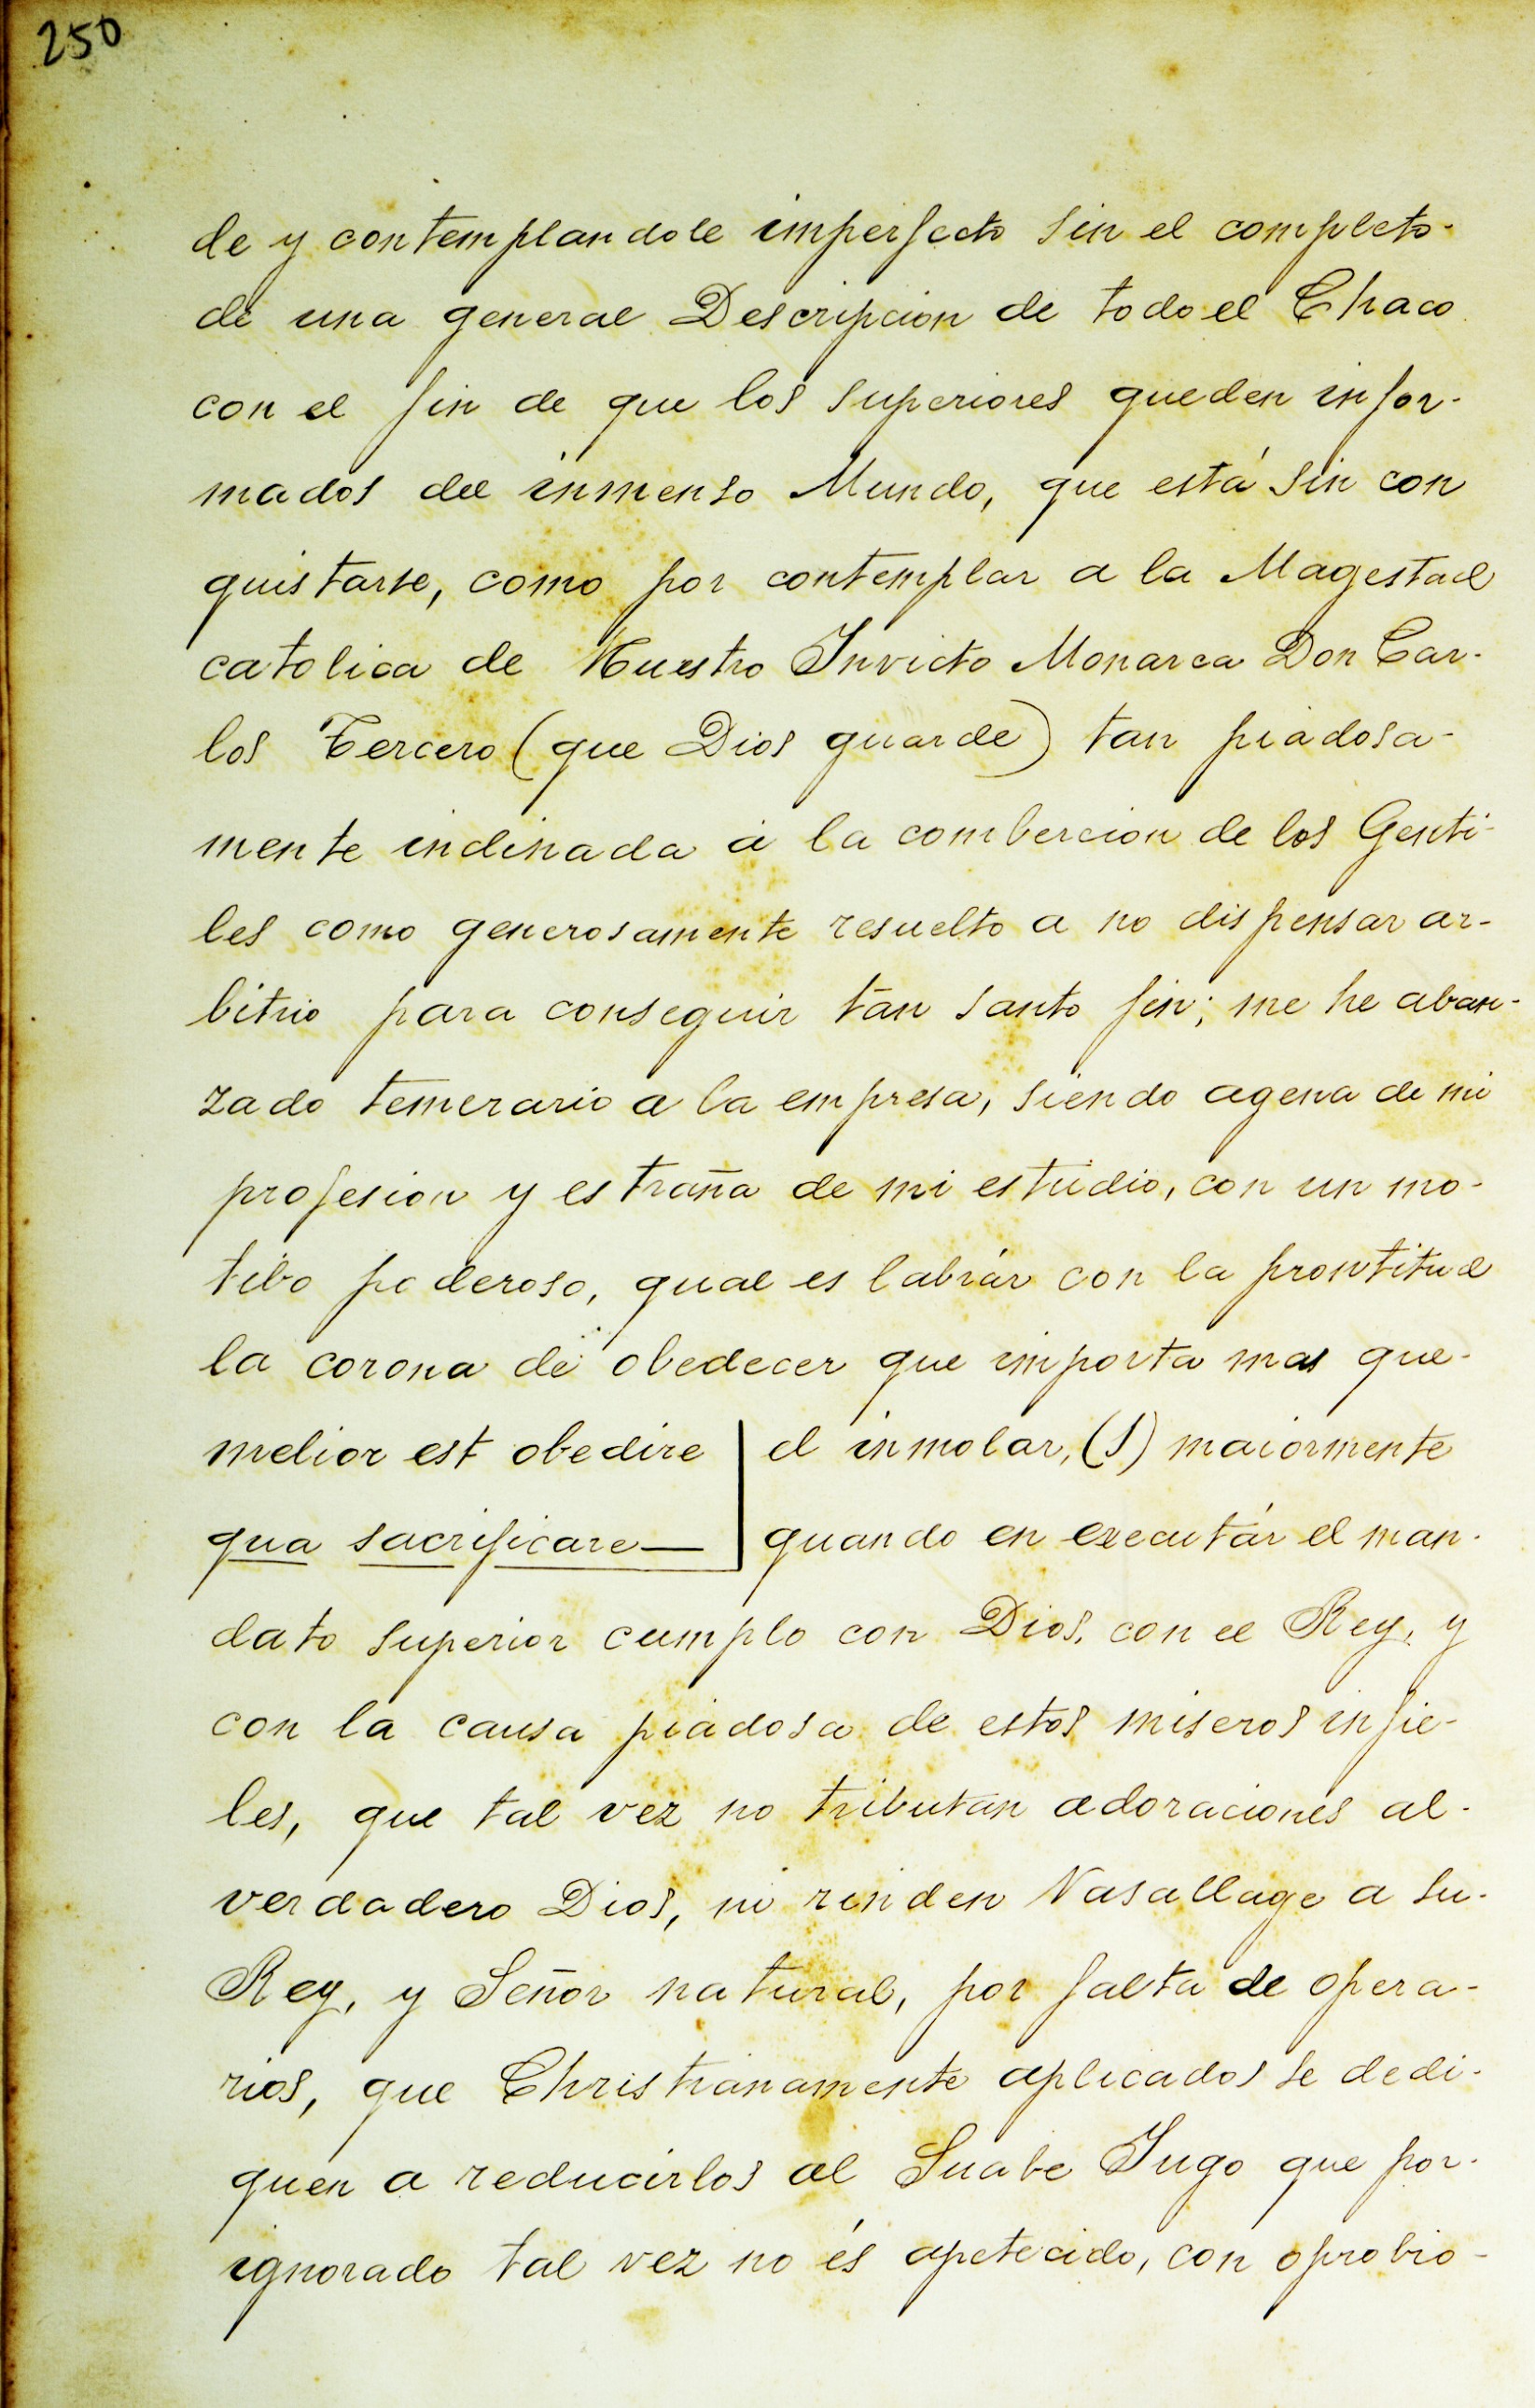 250
de y contemplandole imperfecto sin el completo-
de una general Descripcion de todo el Chaco
con el fin de que los superiores queden infor-
mados del inmenso Mundo, que está sin con
quistarse, como por contemplar a la Magestad
catolica de Nuestro Invicto Monarca Don Car-
los Tercero (que Dios guarde) tan piadosa-
mente inclinada á la combercion de los Genti-
les como generosamente resuelto a no dispensar ar-
bitrio para conseguir tan santo fin; me he aban-
zado temerario a la empresa, siendo agena de mi
profesion y estraña de mi estudio, con un mo-
tibo poderoso, qual es labrár con la prontitud
la corona de obedecer que importa mas que-
melior est obedire
qua sacrificare—
el inmolar, (1) maiormente
quando en executár el man-
dato superior cumplo con Dios, con el Rey, y
con la causa piadosa de estos miseros infie-
les, que tal vez no tributan adoraciones al-
verdadero Dios, ni rinden Vasallage a su-
Rey, y Señor natural, por falta de opera-
rios, que Christianamente aplicados se dedi-
quen a reducirlos al Suabe Jugo que por-
ignorado tal vez no és apetecido, con oprobio-